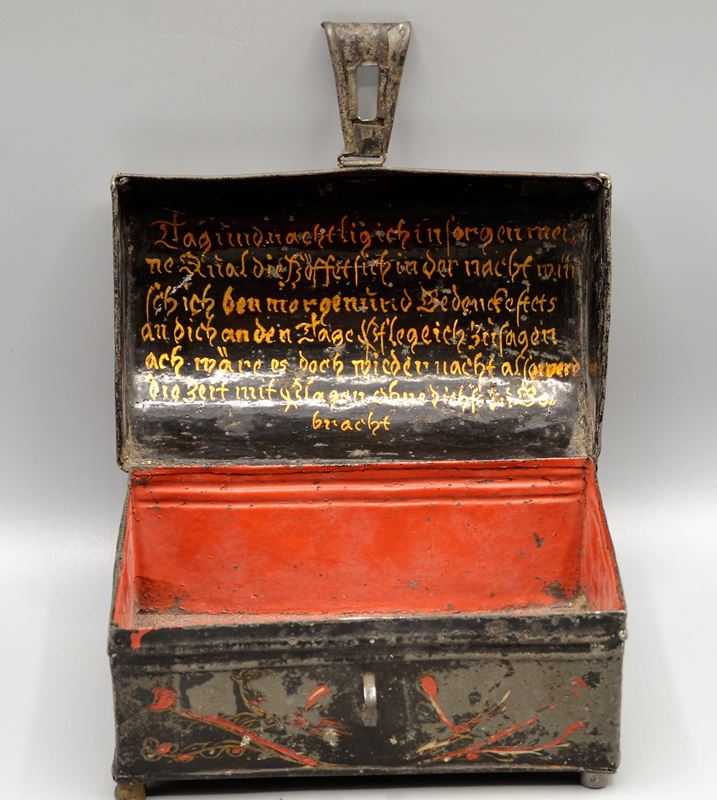 Tag und nacht lig ich in sorgen mei,
ne Qual die Höffet sich in der nacht wün
sch ich ben morgen und Gedencke stets
an dich an den Tage Pflege ich zu sagen
ach wäre es doch wieder nacht also werd
die zeit mit Plagen ohne dich
bracht